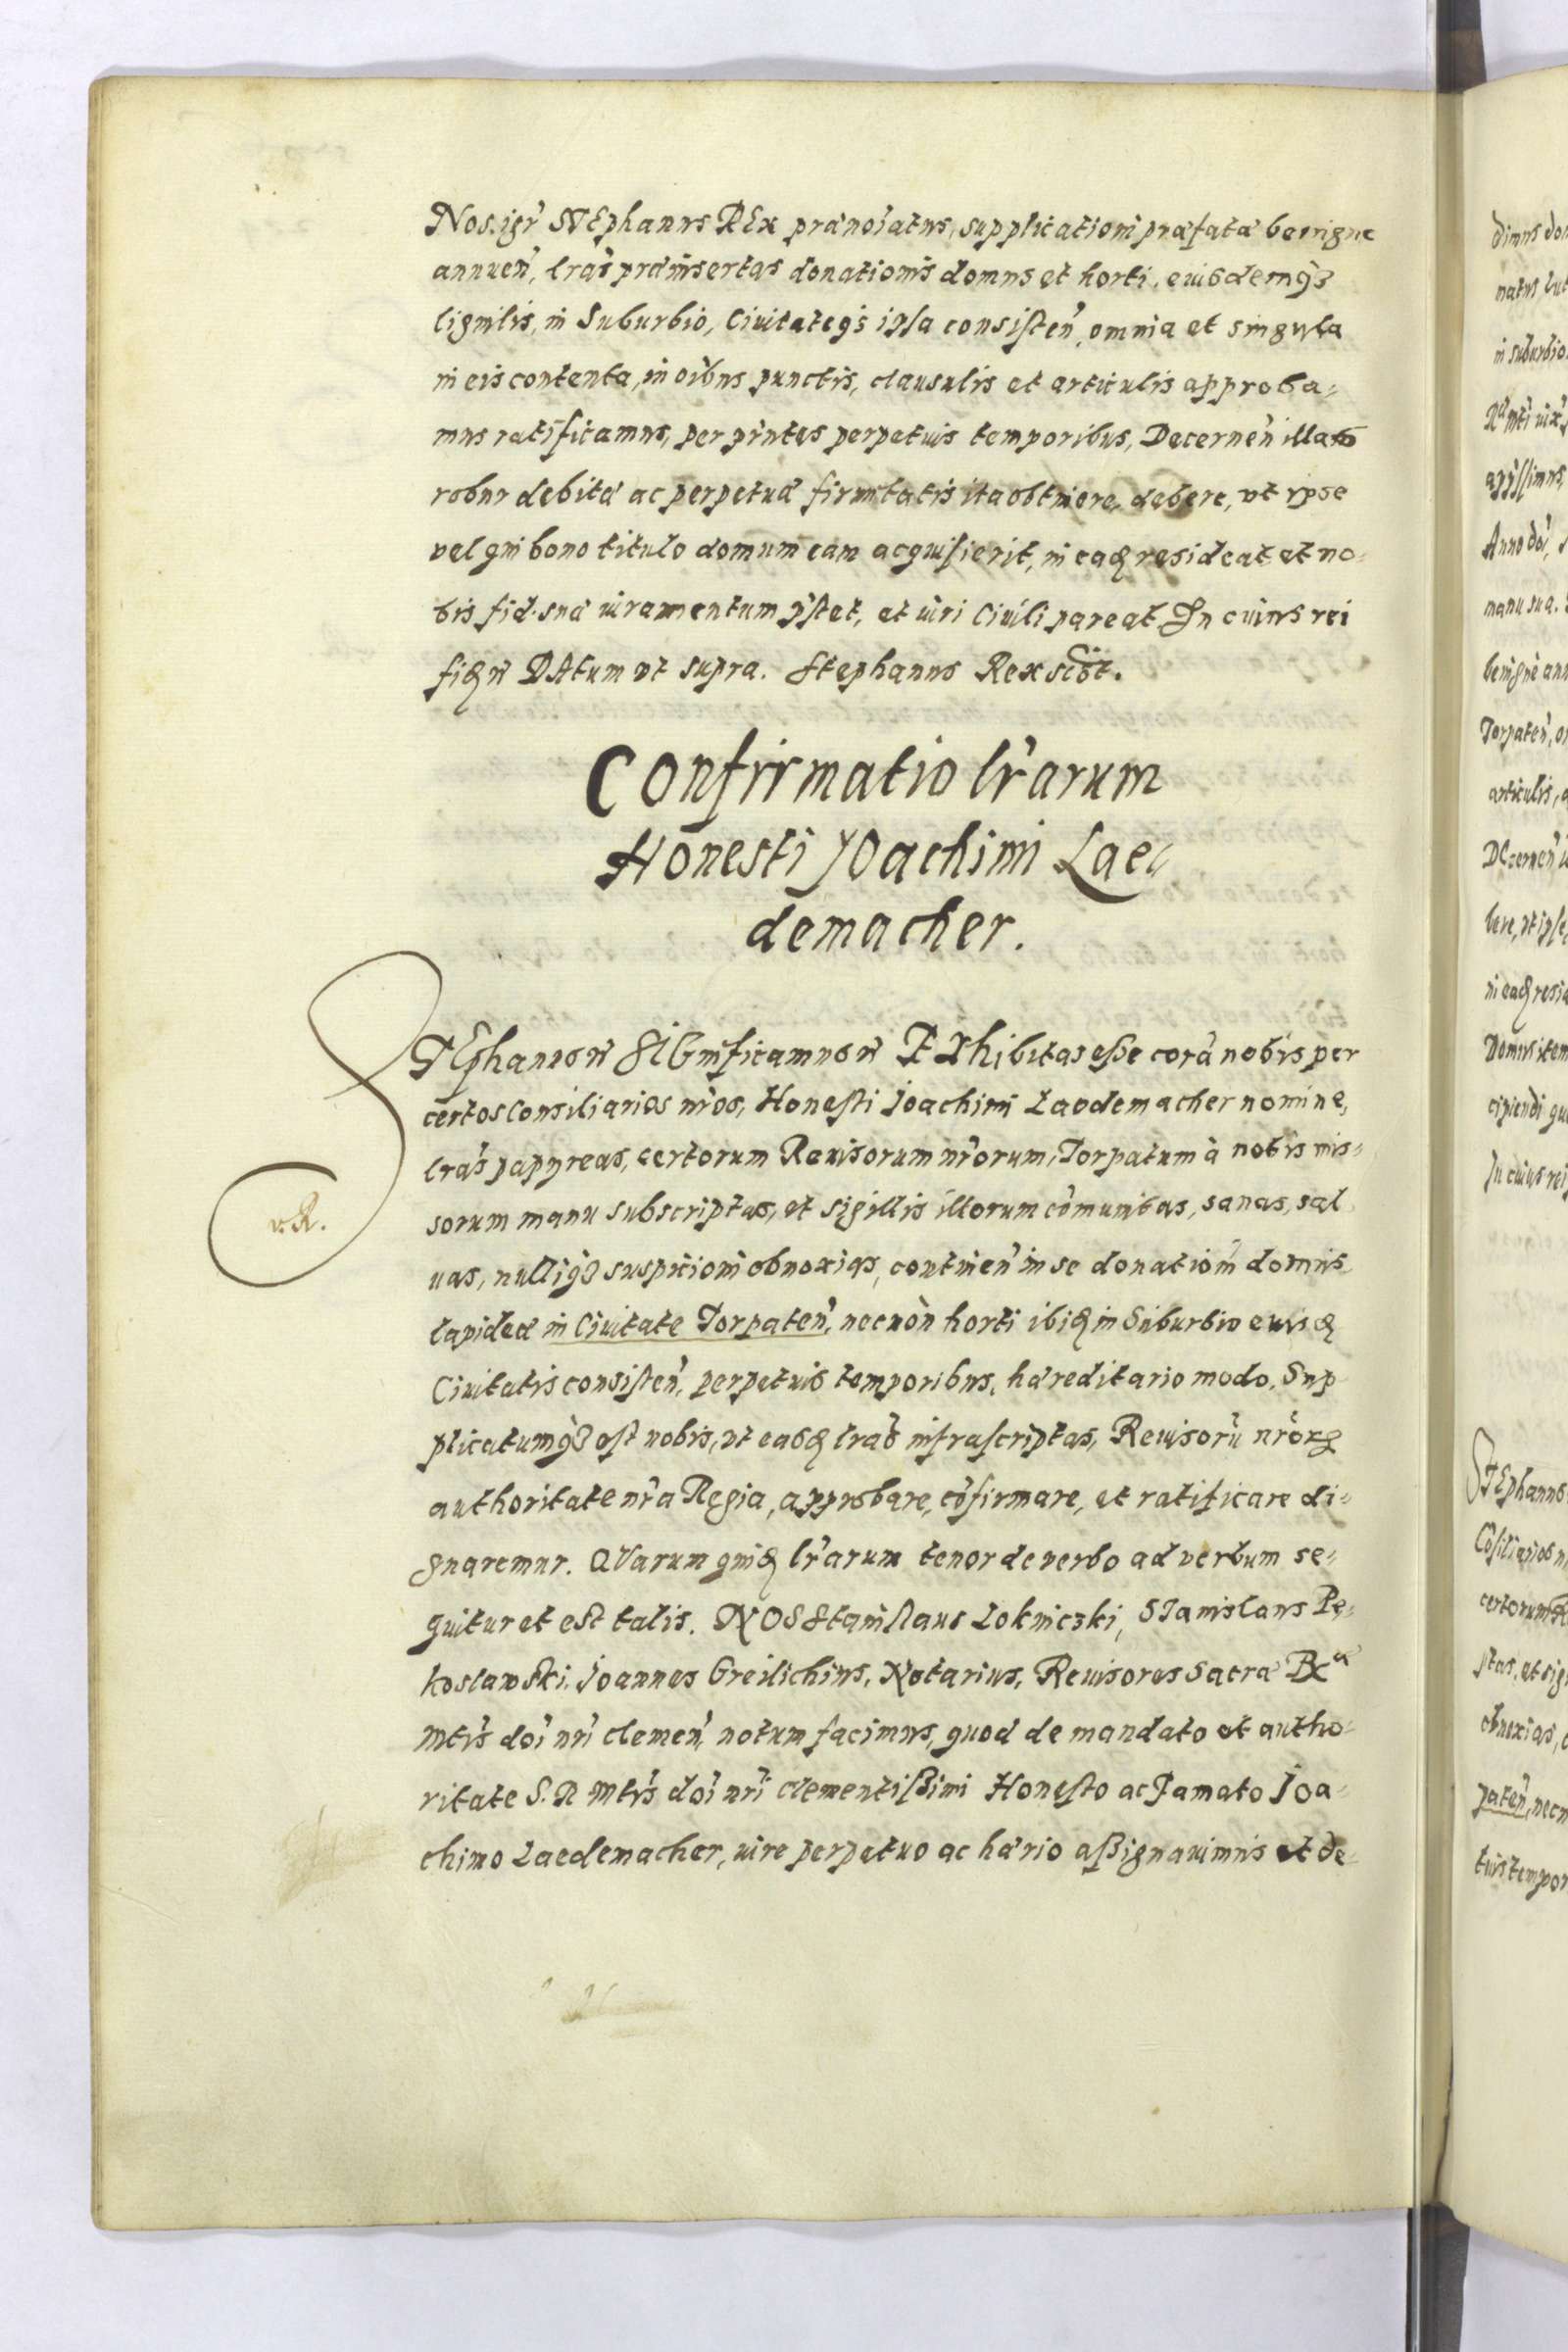 Nos igr̃ STEphanus REx prænoĩatus, supplicationi præfatæ benigne
annuen̾, lras̃ præinsertas donationis domus et horti, eiusdemq3
lignilis, in Suburbio, Ciuitateq3 ipsa consisten̾, omnia et singula
in eis contenta, in oĩbus punctis, clausulis et articulis approba-
mus ratificamus, per pñtes perpetuis temporibus, Decernen̾ illas
robur debitæ ac perpetuæ firmitatis ita obtinere, debere, vt ipse
vel qui bono titulo domum eam acquisierit, in eadē resideat et no-
bis fid. suæ iuramentum p̃stet, et iuri Ciuili pareat In cuius rei
fidē ĩ DAtum vt supra. Stephanus Rex scbt̃.
Confirmatio lr̃arum
Honesti JOachimi Lae-
demacher.
STEphanus ĩ SIGnificamus ĩ EXhibitas esse corã nobis per
certos Consiliarios nr̃os, Honesti Joachimi Laedemacher nomine,
lras̃ papyreas, certorum Reuisorum nr̃orum, Torpatum à nobis mis-
sorum manu subscriptas, et sigillis illorum cõmunitas, sanas, sal
uas, nulliq3 suspicioni obnoxias, continen̾ in se donationẽ domus
lapideæ in Ciuitate Torpaten̾, necnòn horti ibidē in Suburbio eiusdē
Ciuitatis consisten̾, perpetuis temporibus, hæreditario modo. Sup
plicatumq3 est nobis, vt easdē lras̃ infrascriptas, Reuisorũ nr̃orū
authoritate nr̃a Regia, approbare, cõfirmare, et ratificare di-
gnaremur. QVarum quidē lr̃arum tenor de verbo ad verbum se-
quitur et est talis. NOS Stanislaus Lokniczki, STanislaus Pę-
koslawski, Joannes Greilichius, Notarius, Reuisores Sacræ Rᵃ
Mtis̃ doĩ nrĩ clemen̾, notum facimus, quod de mandato et autho-
ritate S. R Mtis̃ doĩ nrĩ clementißimi Honesto ac Famato Joa-
chimo Laedemacher, iure perpetuo ac hærio aßignauimus et de-